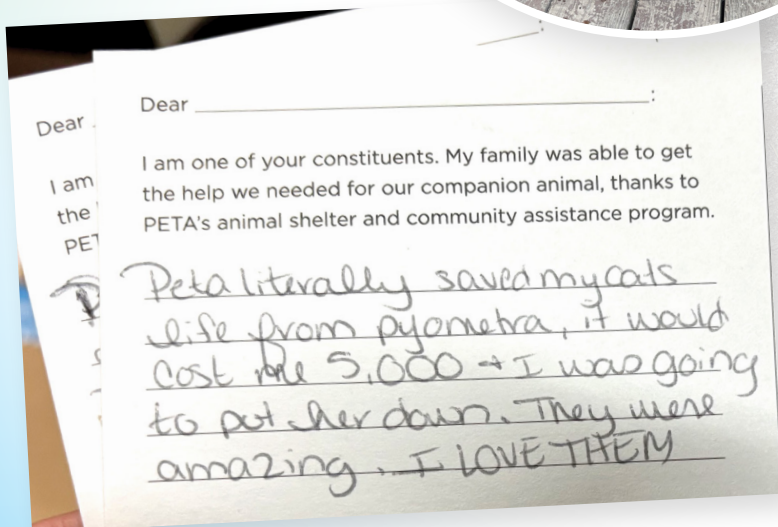 Dear
I am
the
PET
Dear :
I am one of your constituents. My family was able to get
the help we needed for our companion animal, thanks to
PETA's animal shelter and community assistance program.
Peta literally saved my cats
life from pyometra, it would
cost me 5,000 + I was going
to put her down. They were
amazing. I LOVE THEM